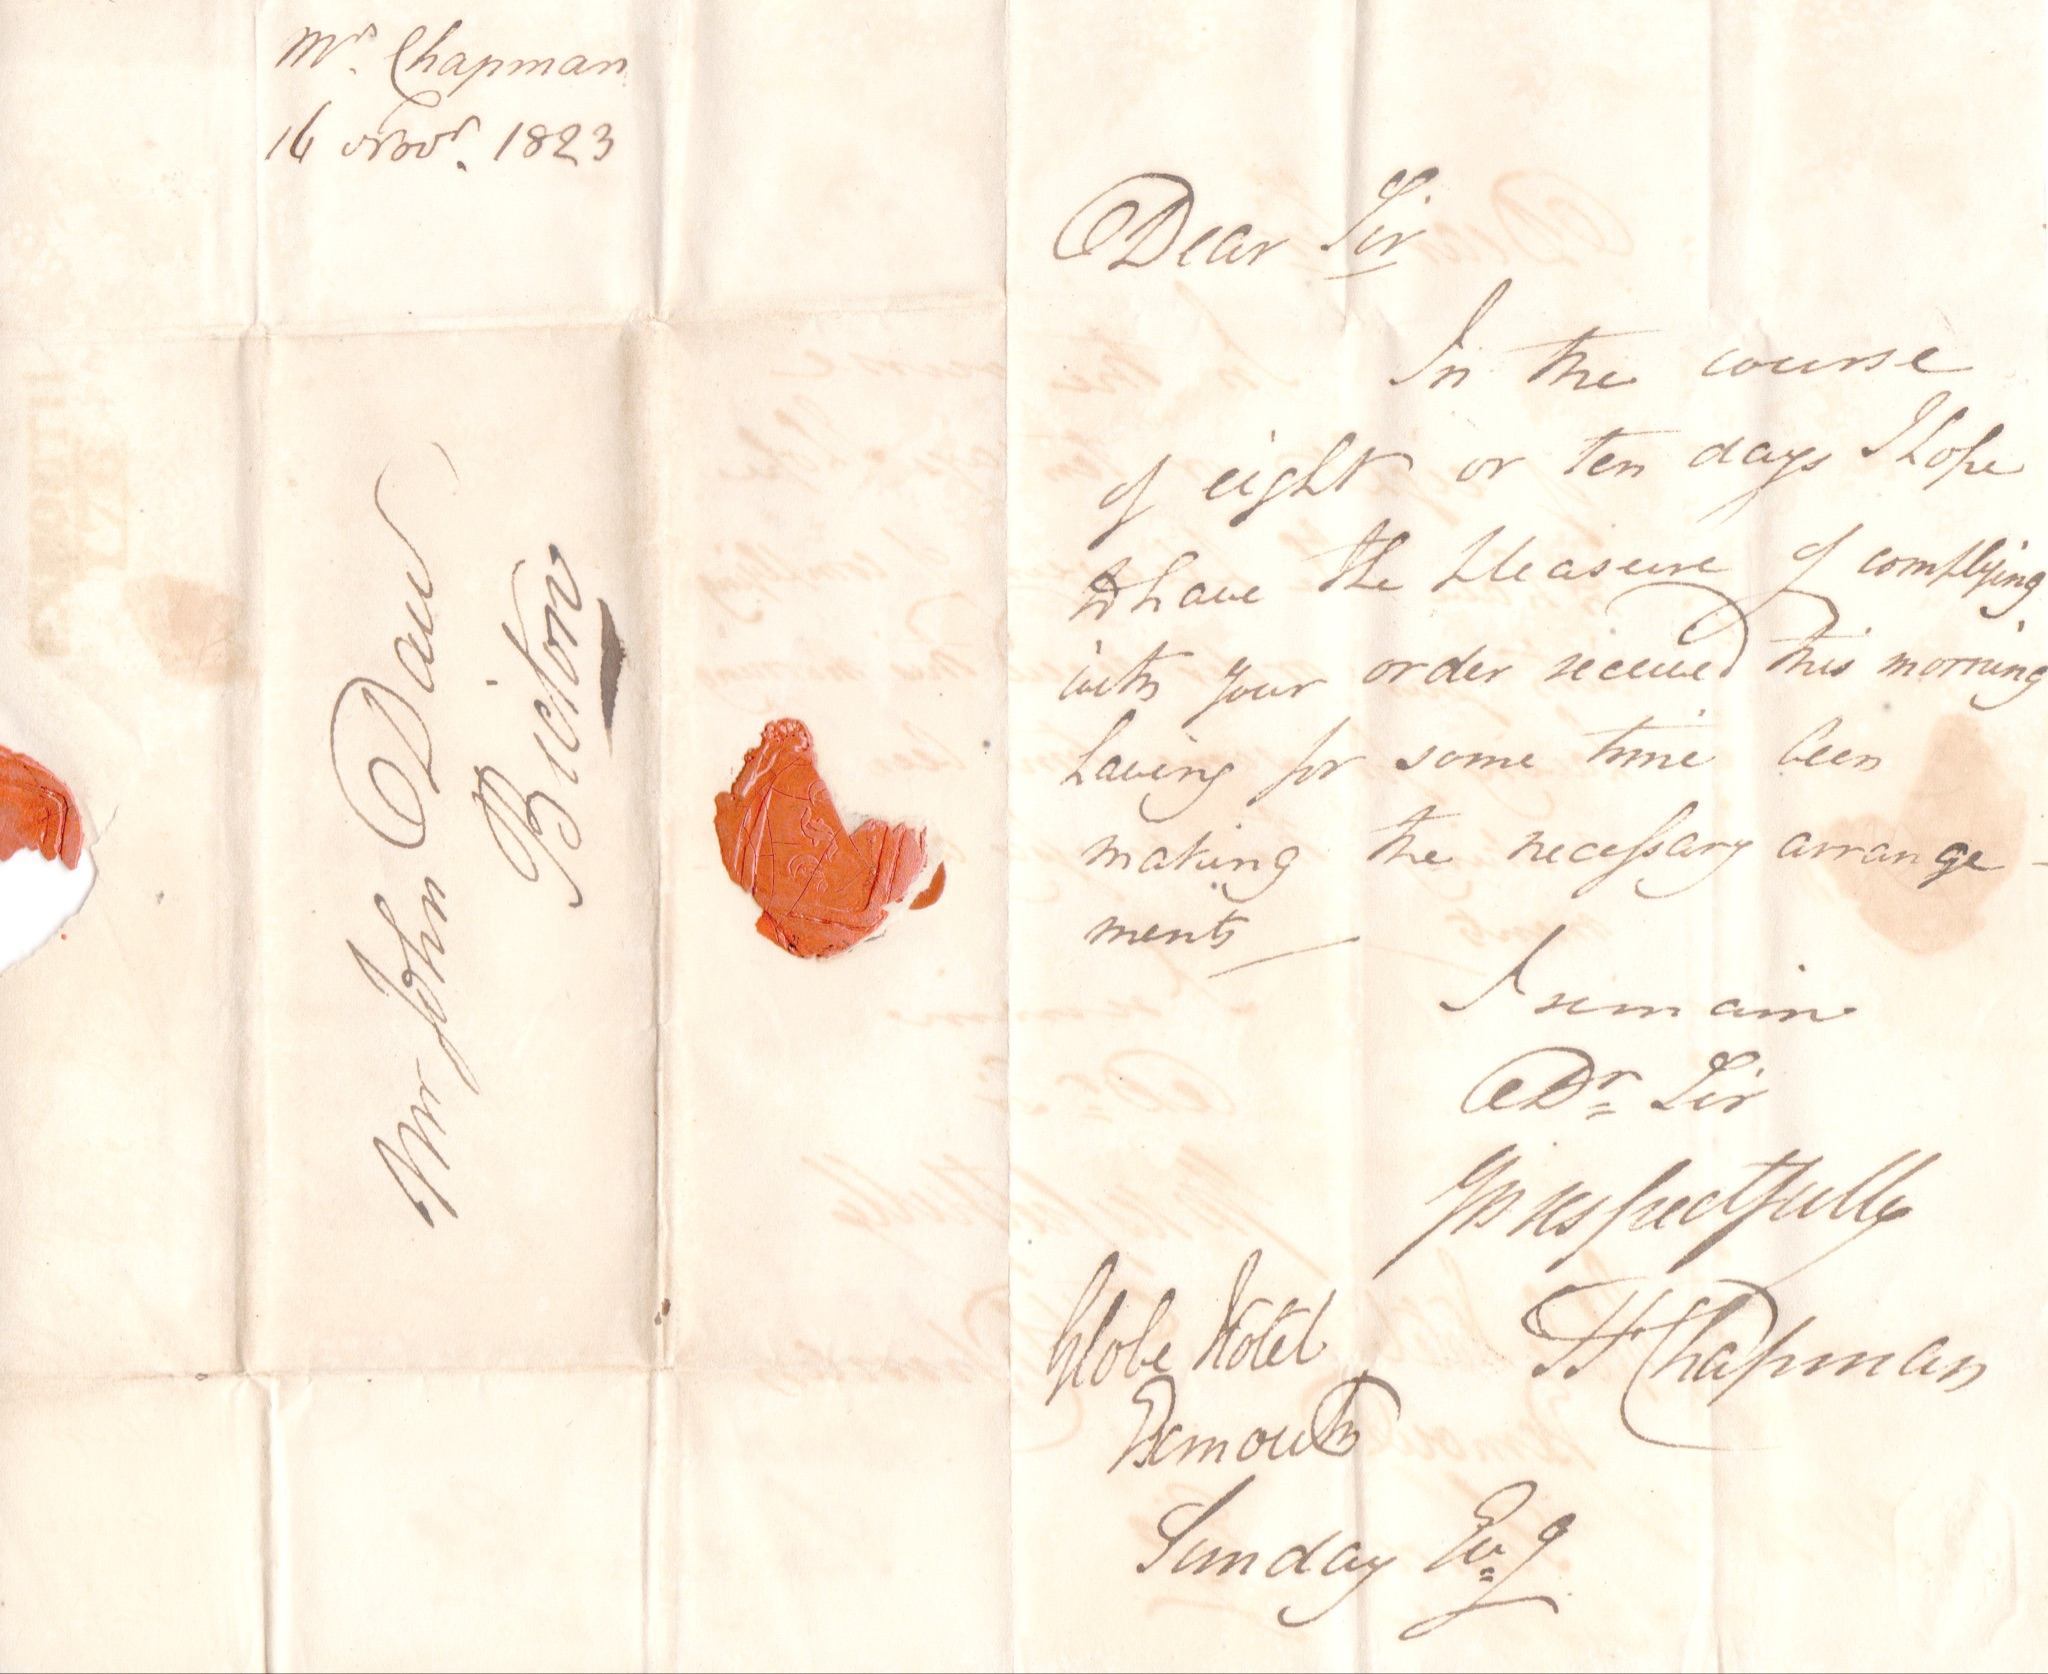 Mrs. Chapman
16 Novr. 1823
Mr John Daw
Bicton
Dear Sir
In the course
of eight or ten days I hope
to have the pleasure of complying
with your order received this morning
having for some time been
making the necessary arrange-
ments —
I remain
Dr Sir
Yrs respectfully
H Chapman
Globe Hotel
Exmouth
Sunday Evg